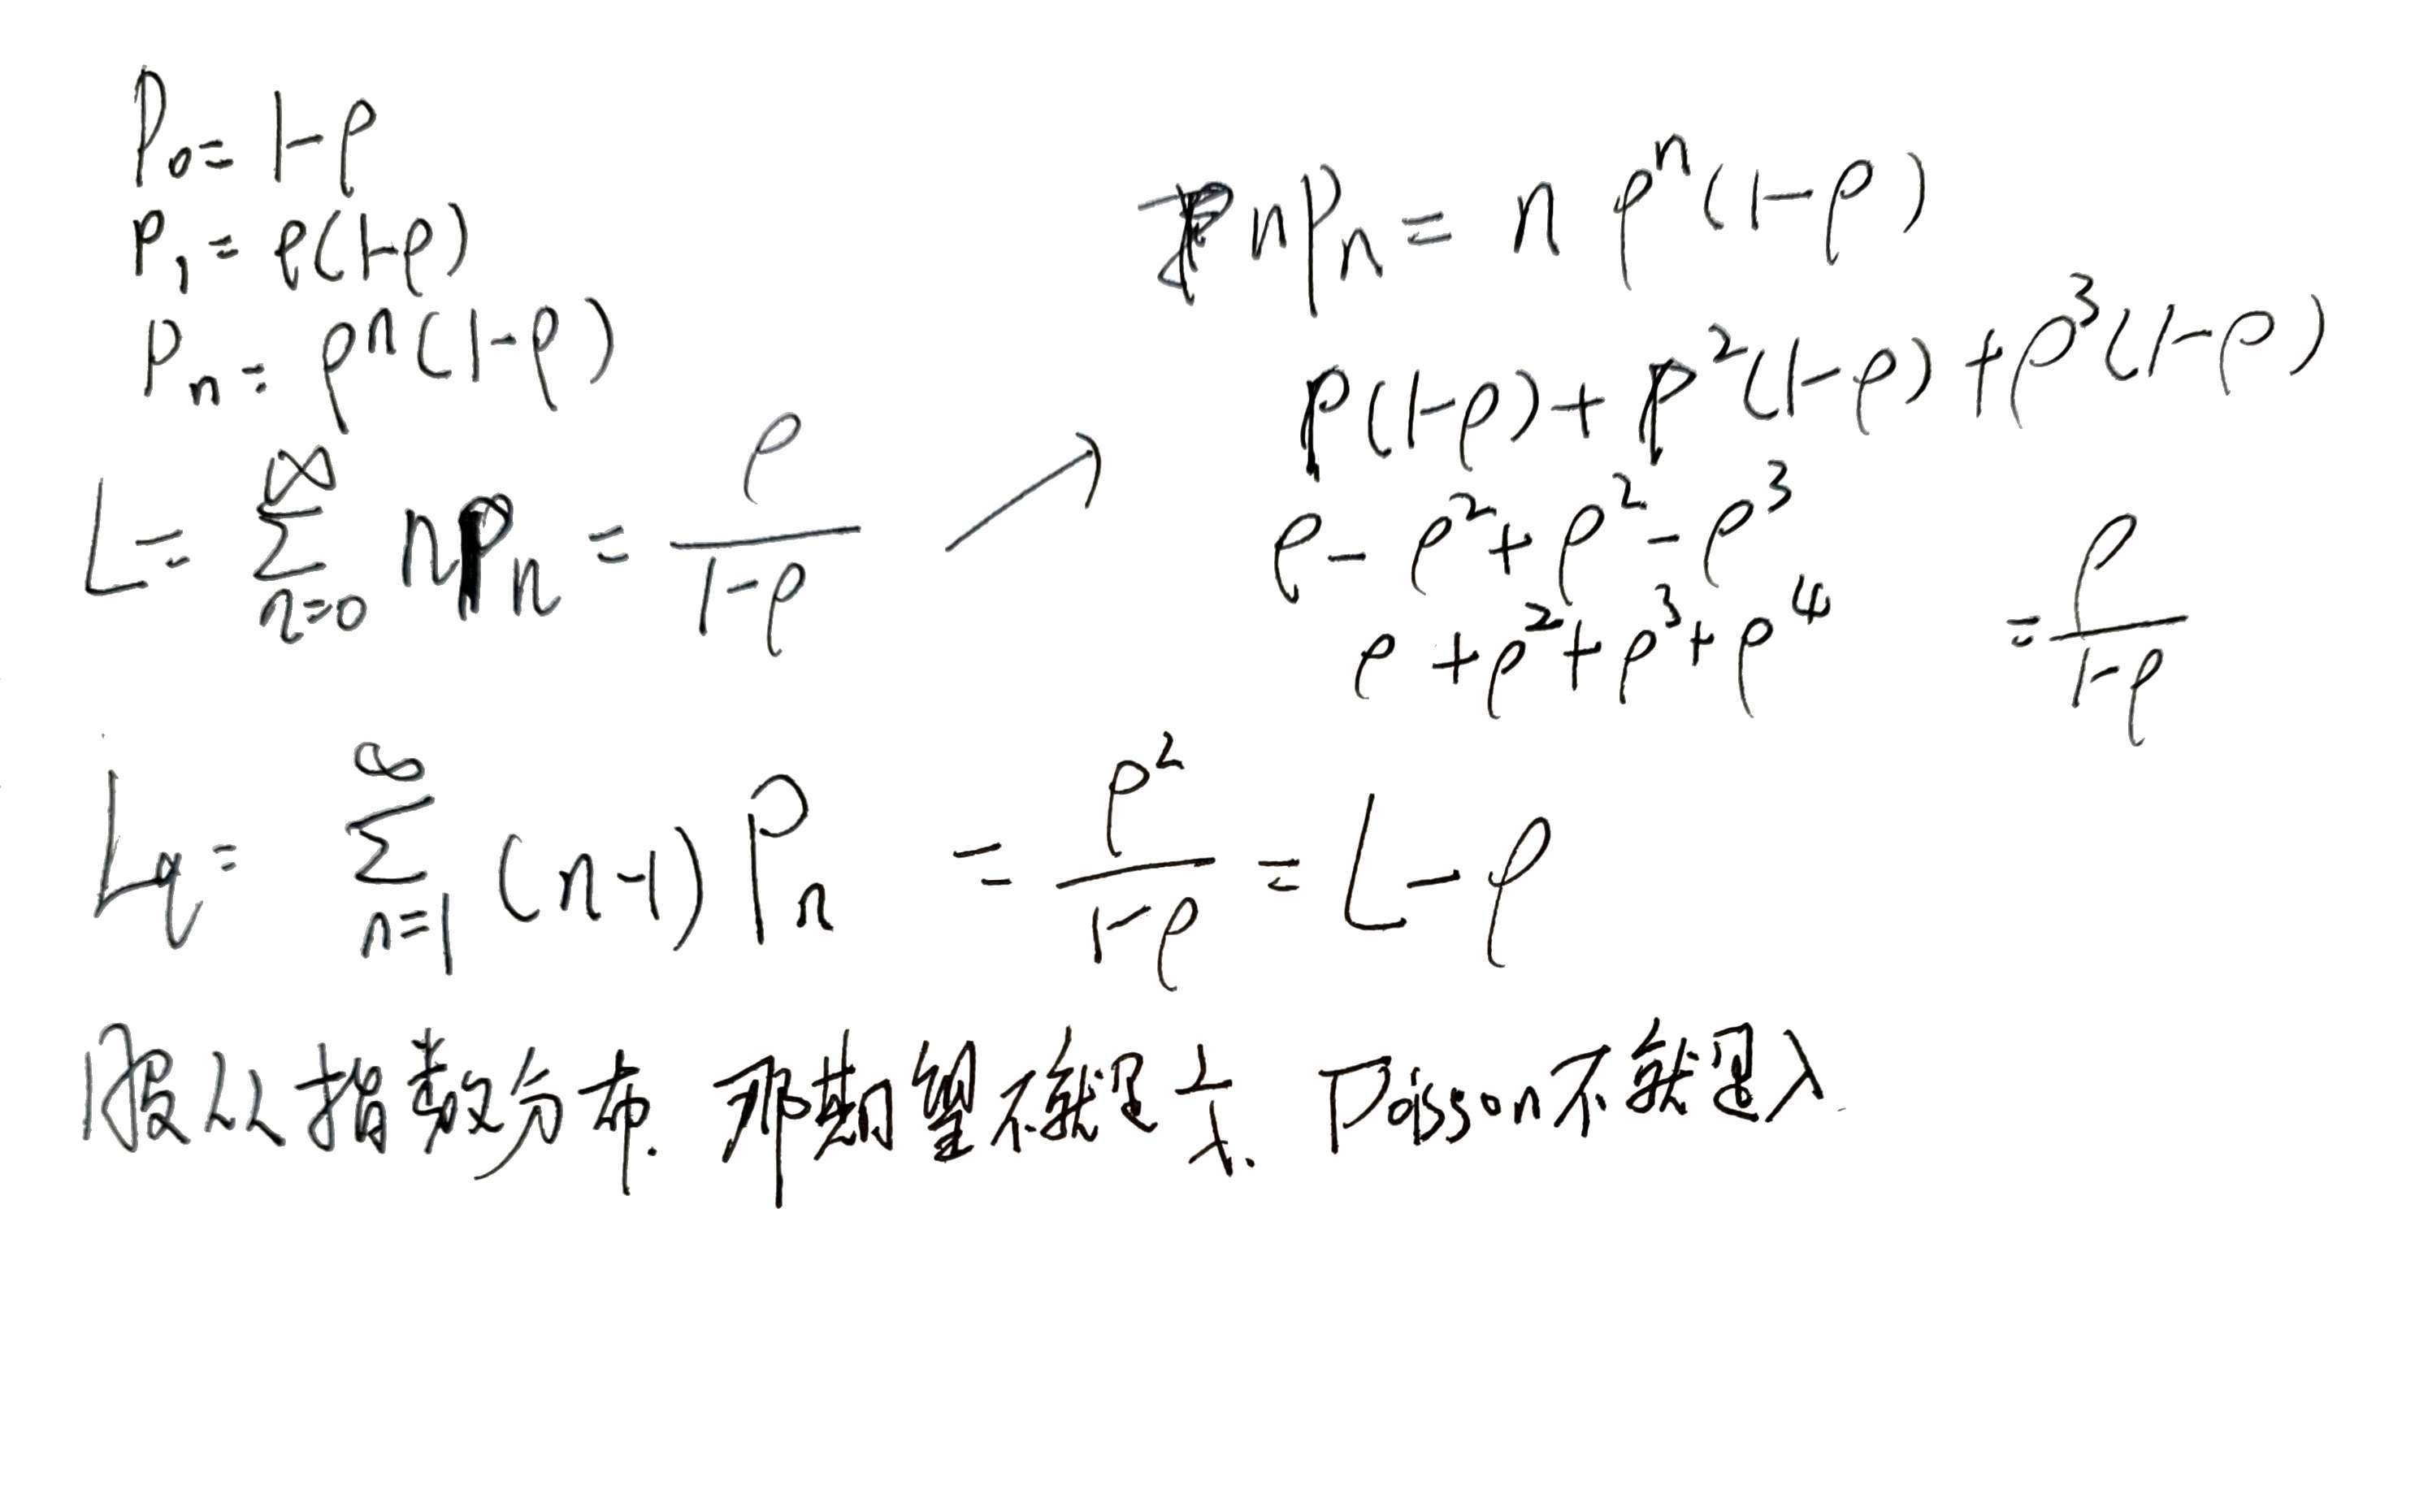 P₀ = 1-ρ
P₁ = ρ(1-ρ)
Pₙ = ρⁿ(1-ρ)
L = ∑_{n=0}^{∞} nPₙ = ρ/(1-ρ) →
nPₙ = n ρⁿ(1-ρ)
ρ(1-ρ) + ρ²(1-ρ) + ρ³(1-ρ)
ρ - ρ² + ρ² - ρ³
ρ + ρ² + ρ³ + ρ⁴ = ρ/(1-ρ)
Lq = ∑_{n=1}^{∞} (n-1) Pₙ = ρ²/(1-ρ) = L - ρ
服从指数分布. 那期望不就是 1/λ. Poisson不就是λ.